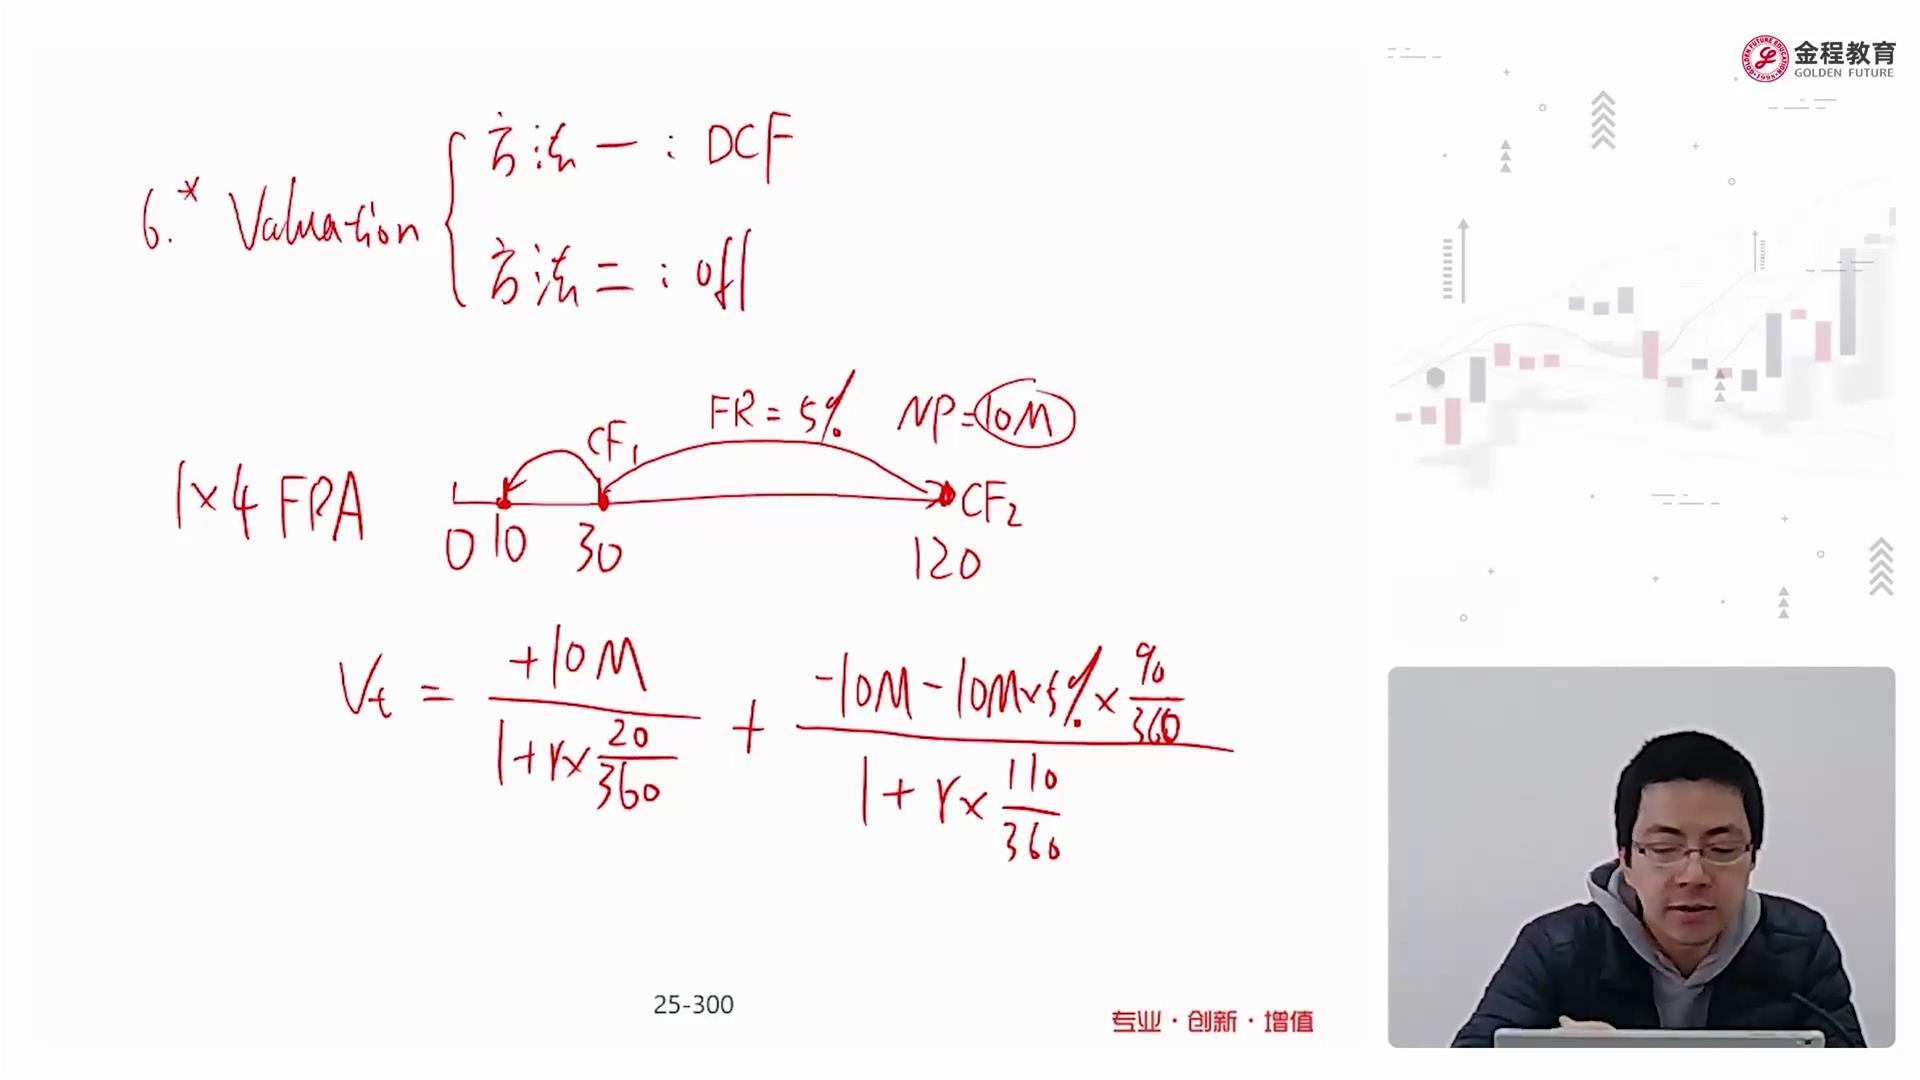 金程教育
GOLDEN FUTURE
6.* Valuation
方法一：DCF
方法二：off
1×4 FRA
FR = 5% NP = 10M
CF₁
CF₂
0 10 30 120
Vt = +10M / (1 + r × 20/360) + (-10M - 10M × 5% × 90/360) / (1 + r × 110/360)
25-300
专业·创新·增值